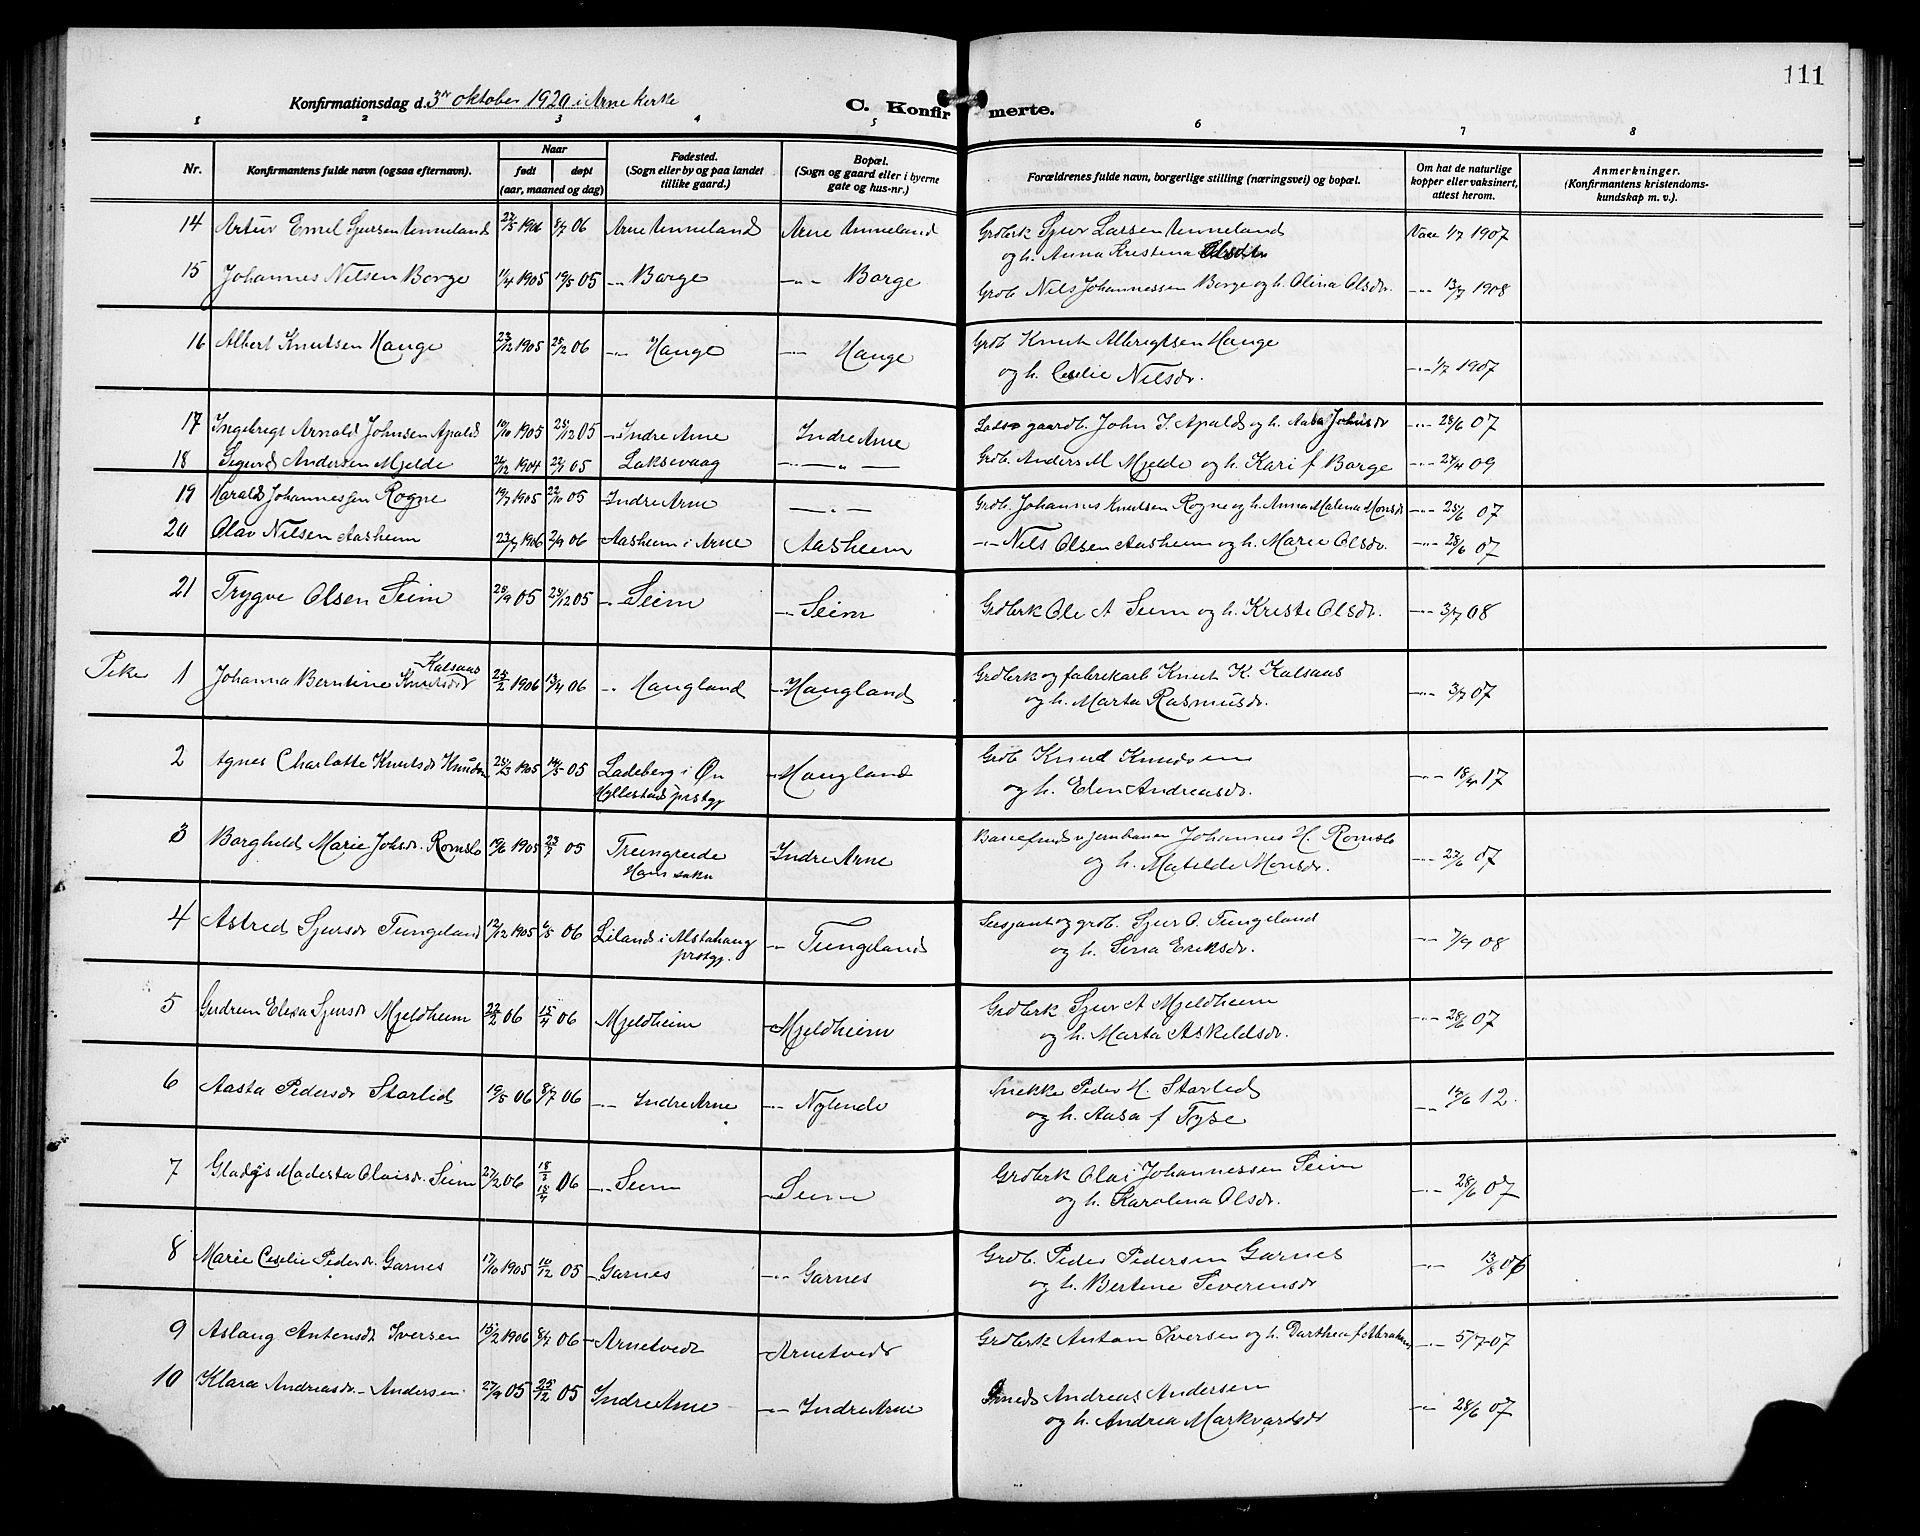 111
Konfirmationsdag d. 3die oktober 1920 i Arne kirke
C. Konfirmerte.
1 2 3 4 5 6 7 8
Nr. Konfirmantens fulde navn (og saa efternavn). Naar født døpt (aar, maaned og dag) Fødested. (Sogn eller by og paa landet tillike gaard.) Bopæl. (Sogn og gaard eller i byerne gate og hus-nr.) Forældrenes fulde navn, borgerlige stilling (næringsvei) og bopæl. Om hat de naturlige kopper eller vaksinert, attest herom. Anmerkninger. (Konfirmantens kristendomskundskap m. v.).
14 Artur Emil Sjursen Unneland 27/5 1906 8/7 06 Arne Unneland Arne Unneland Grdbrk Sjur Larsen Unneland Vacc 1/7 1907
og h. Anna Kristina Olsdtr
15 Johannes Nilsen Borge 11/4 1905 19/5 05 -"- Borge -"- Borge Grdb. Nils Johannessen Borge og h. Olina Olsdr. -"- 13/7 1908
16 Albert Knutsen Hauge 23/12 1905 25/2 06 -"- Hauge -"- Hauge Grdb Knut Albrigtsen Hauge
og h. Cecilie Nilsdr. -"- 1/7 1907
17 Ingebrigt Arnold Johnsen Apald 10/10 1905 25/12 05 Indre Arne Indre Arne gaardb. John I. Apald og h. Aasa Johnsdr -"- 28/6 07
18 Sigurd Andersen Mjelde 26/12 1904 22/1 05 Laksevaag -"- Grdb. Anders M Mjelde og h. Kari f Borge -"- 24/4 09
19 Harald Johannesjen Rogne 19/7 1905 22/10 05 Indre Arne -"- Grdb. Johannes Knutsen Rogne og h. Anna Malena Monsdr -"- 25/6 07
20 Olav Nilsen Aasheim 23/7 1906 2/9 06 Aasheim i Arne Aasheim -"- Nils Olsen Aasheim og h. Marie Olsdr. -"- 28/6 07
21 Trygve Olsen Seim 25/9 05 25/12 05 -"- Seim -"- Seim Grdbrk Ole A Seim og h. Kriste Olsdr. -"- 3/7 08
Kalsaas
Pike 1 Johanna Berntine Knutsdr 25/2 1906 13/4 06 -"- Haugland -"- Haugland Grdbrk og fabrikarb Knut K. Kalsaas
og h. Marta Rasmusdr. -"- 3/7 07
2 Agnes Charlotte Knutsdr Knudsen 25/3 1905 14/5 05 Ladeberg i Øn Haugland Grdb Knud Knudsen
Hyllestad prstgj og h. Elen Andreasdr. -"- 18/4 17
3 Borghild Marie Johsdr. Romslo 19/6 1905 23/7 05 Trengreide Indre Arne v jernbanen Johannes H. Romslo
Haus sokn og h. Matilde Monsdr. -"- 27/6 07
4 Astrid Sjursdr Tungeland 12/12 1905 6/5 06 Liland i Alstahaug -"- Tungeland Sersjant og grdb. Sjur O. Tungeland
prstgj. og h. Sina Eriksdr. -"- 7/9 08
5 Gudrun Elisa Sjursdr Mjeldheim 22/2 06 15/4 06 Mjeldheim Mjeldheim Grdbrk Sjur A Mjeldheim
og h. Marta Askeldsdr. -"- 28/6 07
6 Aasta Pedersdr Starlid 19/5 06 8/7 06 -"- Indre Arne -"- Nylende Snekke Peder H. Starlid
og h. Aasa f Tyse -"- 13/6 12.
7 Gladys Modesta Olaisdr. Seim 27/2 06 18/3 15/4 06 -"- Seim -"- Seim Grdbrk Olai Johannessen Seim
og h. Karolina Olsdr. -"- 28/6 07
8 Marie Cecilie Pedersdr. Garnes 17/10 1905 10/12 05 Garnes -"- Garnes Grdb. Peder Pedersen Garnes
og h. Bertine Severinsdr -"- 13/8 06
9 Aslaug Antonsdt Iversen 15/2 1906 8/7 06 Arnetvedt Arnetvedt Grdbrk Anton Iversen og h. Darthea f -"- 5/7-07
10 Klara Andreasdr. Andersen 27/9 05 25/12 05 Indre Arne -"- Indre Arne Smed Andreas Andersen
og h. Andrea Markvardsdr -"- 28/6 07